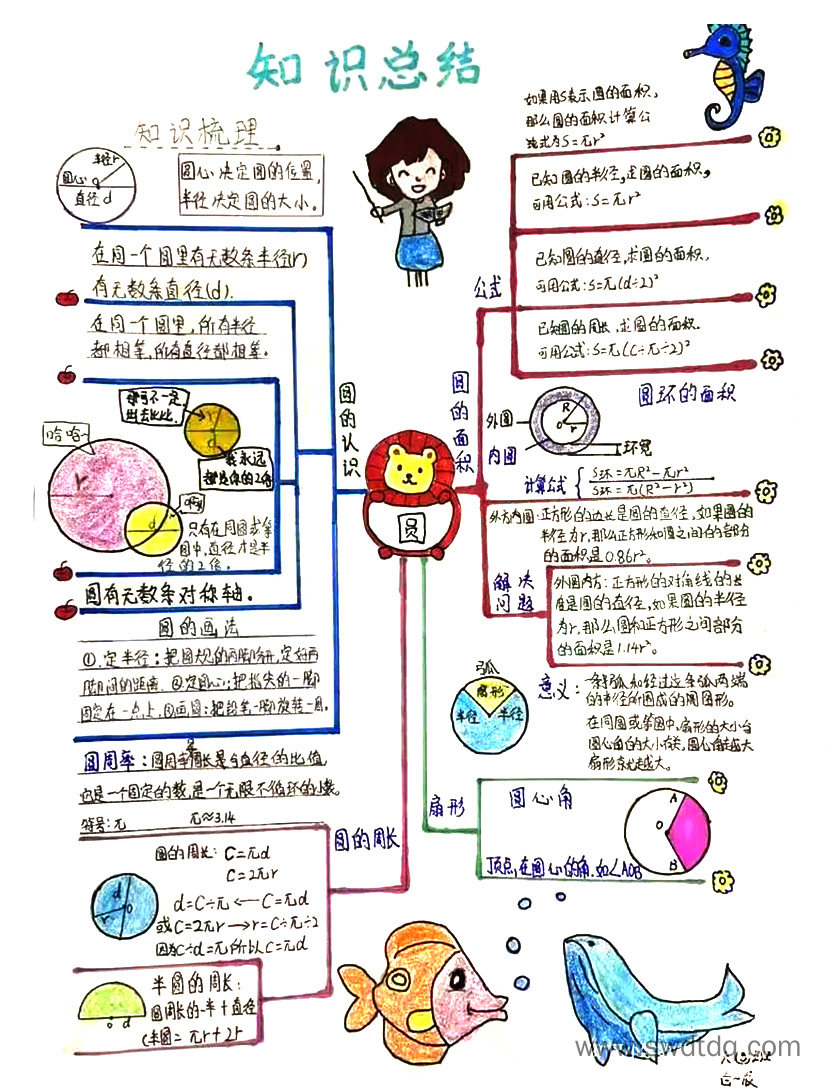 知识总结
知识梳理
半径r
圆心
直径d
圆心决定圆的位置,
半径决定圆的大小。
在同一个圆里有无数条半径(r)
有无数条直径(d).
在同一个圆里,所有半径
都相等,所有直径都相等。
哈哈~
r
d
r
d
我永远
都是你的2倍
只有在同圆或等
圆中,直径才是半
径的2倍。
圆有无数条对称轴。
圆的画法
①.定半径:把圆规的两脚分开,定好两
脚间的距离.②定圆心:把指尖的一脚
固定在一点上.③画圆:把铅笔一脚旋转一圈。
圆周率:圆周率周长是与直径的比值
也是一个固定的数,是一个无限不循环的小数。
符号:π π≈3.14
圆的认识
圆
圆的周长
圆的周长:C=πd
C=2πr
d=C÷π ← C=πd
或C=2πr→r=C÷π÷2
因为C÷d=π所以C=πd
d
r
半圆的周长:
圆周长的一半+直径
C半圆=πr+2r
o d
如果用S表示圆的面积,
那么圆的面积计算公
式为S=πr²
已知圆的半径,求圆的面积,
可用公式:S=πr²
公式
已知圆的直径,求圆的面积.
可用公式:S=π(d÷2)²
已知圆的周长,求圆的面积.
可用公式:S=π(C÷π÷2)²
圆的面积
圆环的面积
外圆
内圆
R
O
r
环宽
计算公式
S环=πR²-πr²
S环=π(R²-r²)
外方内圆:正方形的边长是圆的直径,如果圆的
半径为r,那么正方形和圆之间的部分
的面积是0.86r²。
解决
问题
外圆内方:正方形的对角线的长
度是圆的直径,如果圆的半径
为r,那么圆和正方形之间部分
的面积是1.14r²。
弧
扇形
半径
半径
意义:
一条弧和经过这条弧两端
的半径所围成的图形。
在同圆或等圆中,扇形的大小与
圆心角的大小有关,圆心角越大
扇形就越大。
扇形
圆心角
A
O
B
顶点,在圆心的角.如∠AOB
www.swdtdq.com